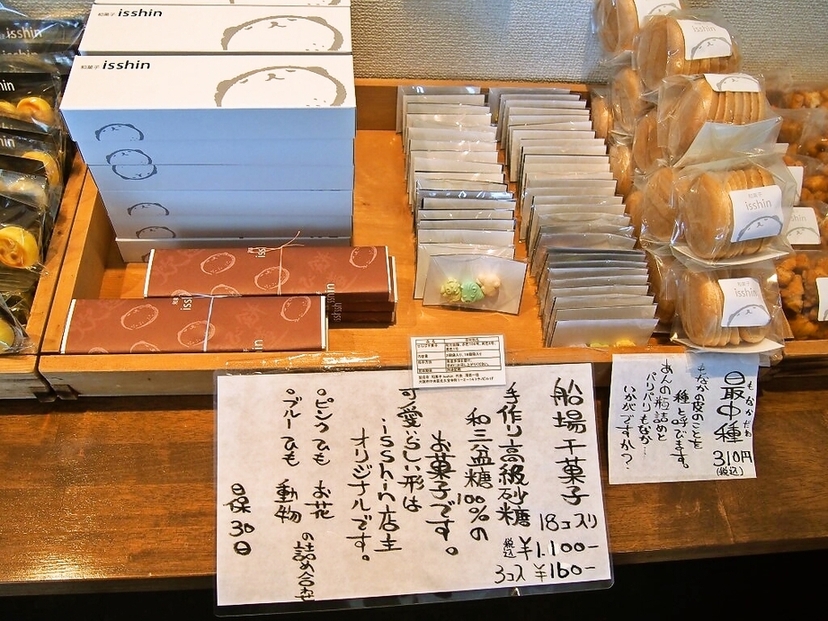 isshin
isshin
和菓子 isshin
和菓子 isshin
isshin
isshin
isshin
isshin
isshin
isshin
isshin
船場干菓子
18コ入り
税込 ¥1.100-
3コ入 ¥160-
手作り高級砂糖
和三盆糖100%の
お菓子です。
可愛いらしい形は
isshin店主
オリジナルです。
。ピンクひも お花
。ブルーひも 動物
の詰め合わせ
日保30日
もなかだね
最中種
310円
(税込)
もなかの皮のことを
種と呼びます。
あんの瓶詰めと
パリパリもなか
いかがですか?